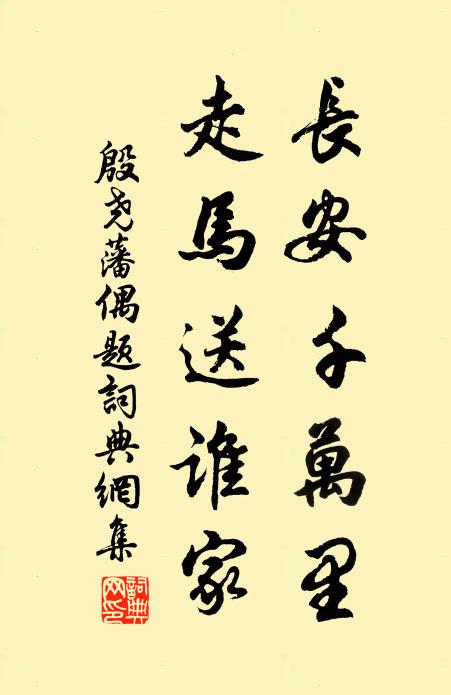 長安千萬里
走馬送誰家
殷尧藩偶题詞典網集
詞典網印